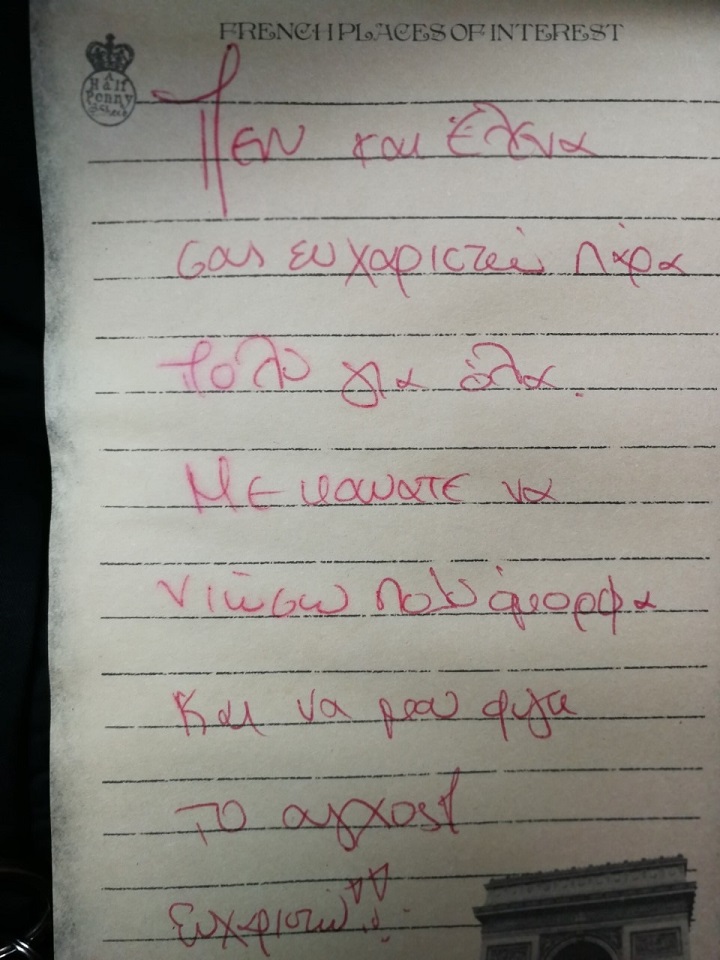 FRENCH PLACES OF INTEREST
A
Half
Penny
Πεν και Έλενα
σας ευχαριστώ πάρα
πολύ για όλα.
Με κανατε να
νιώσω πολύ όμορφα
Και να μου φυγει
το αγχος!
Ευχαριστώ!!